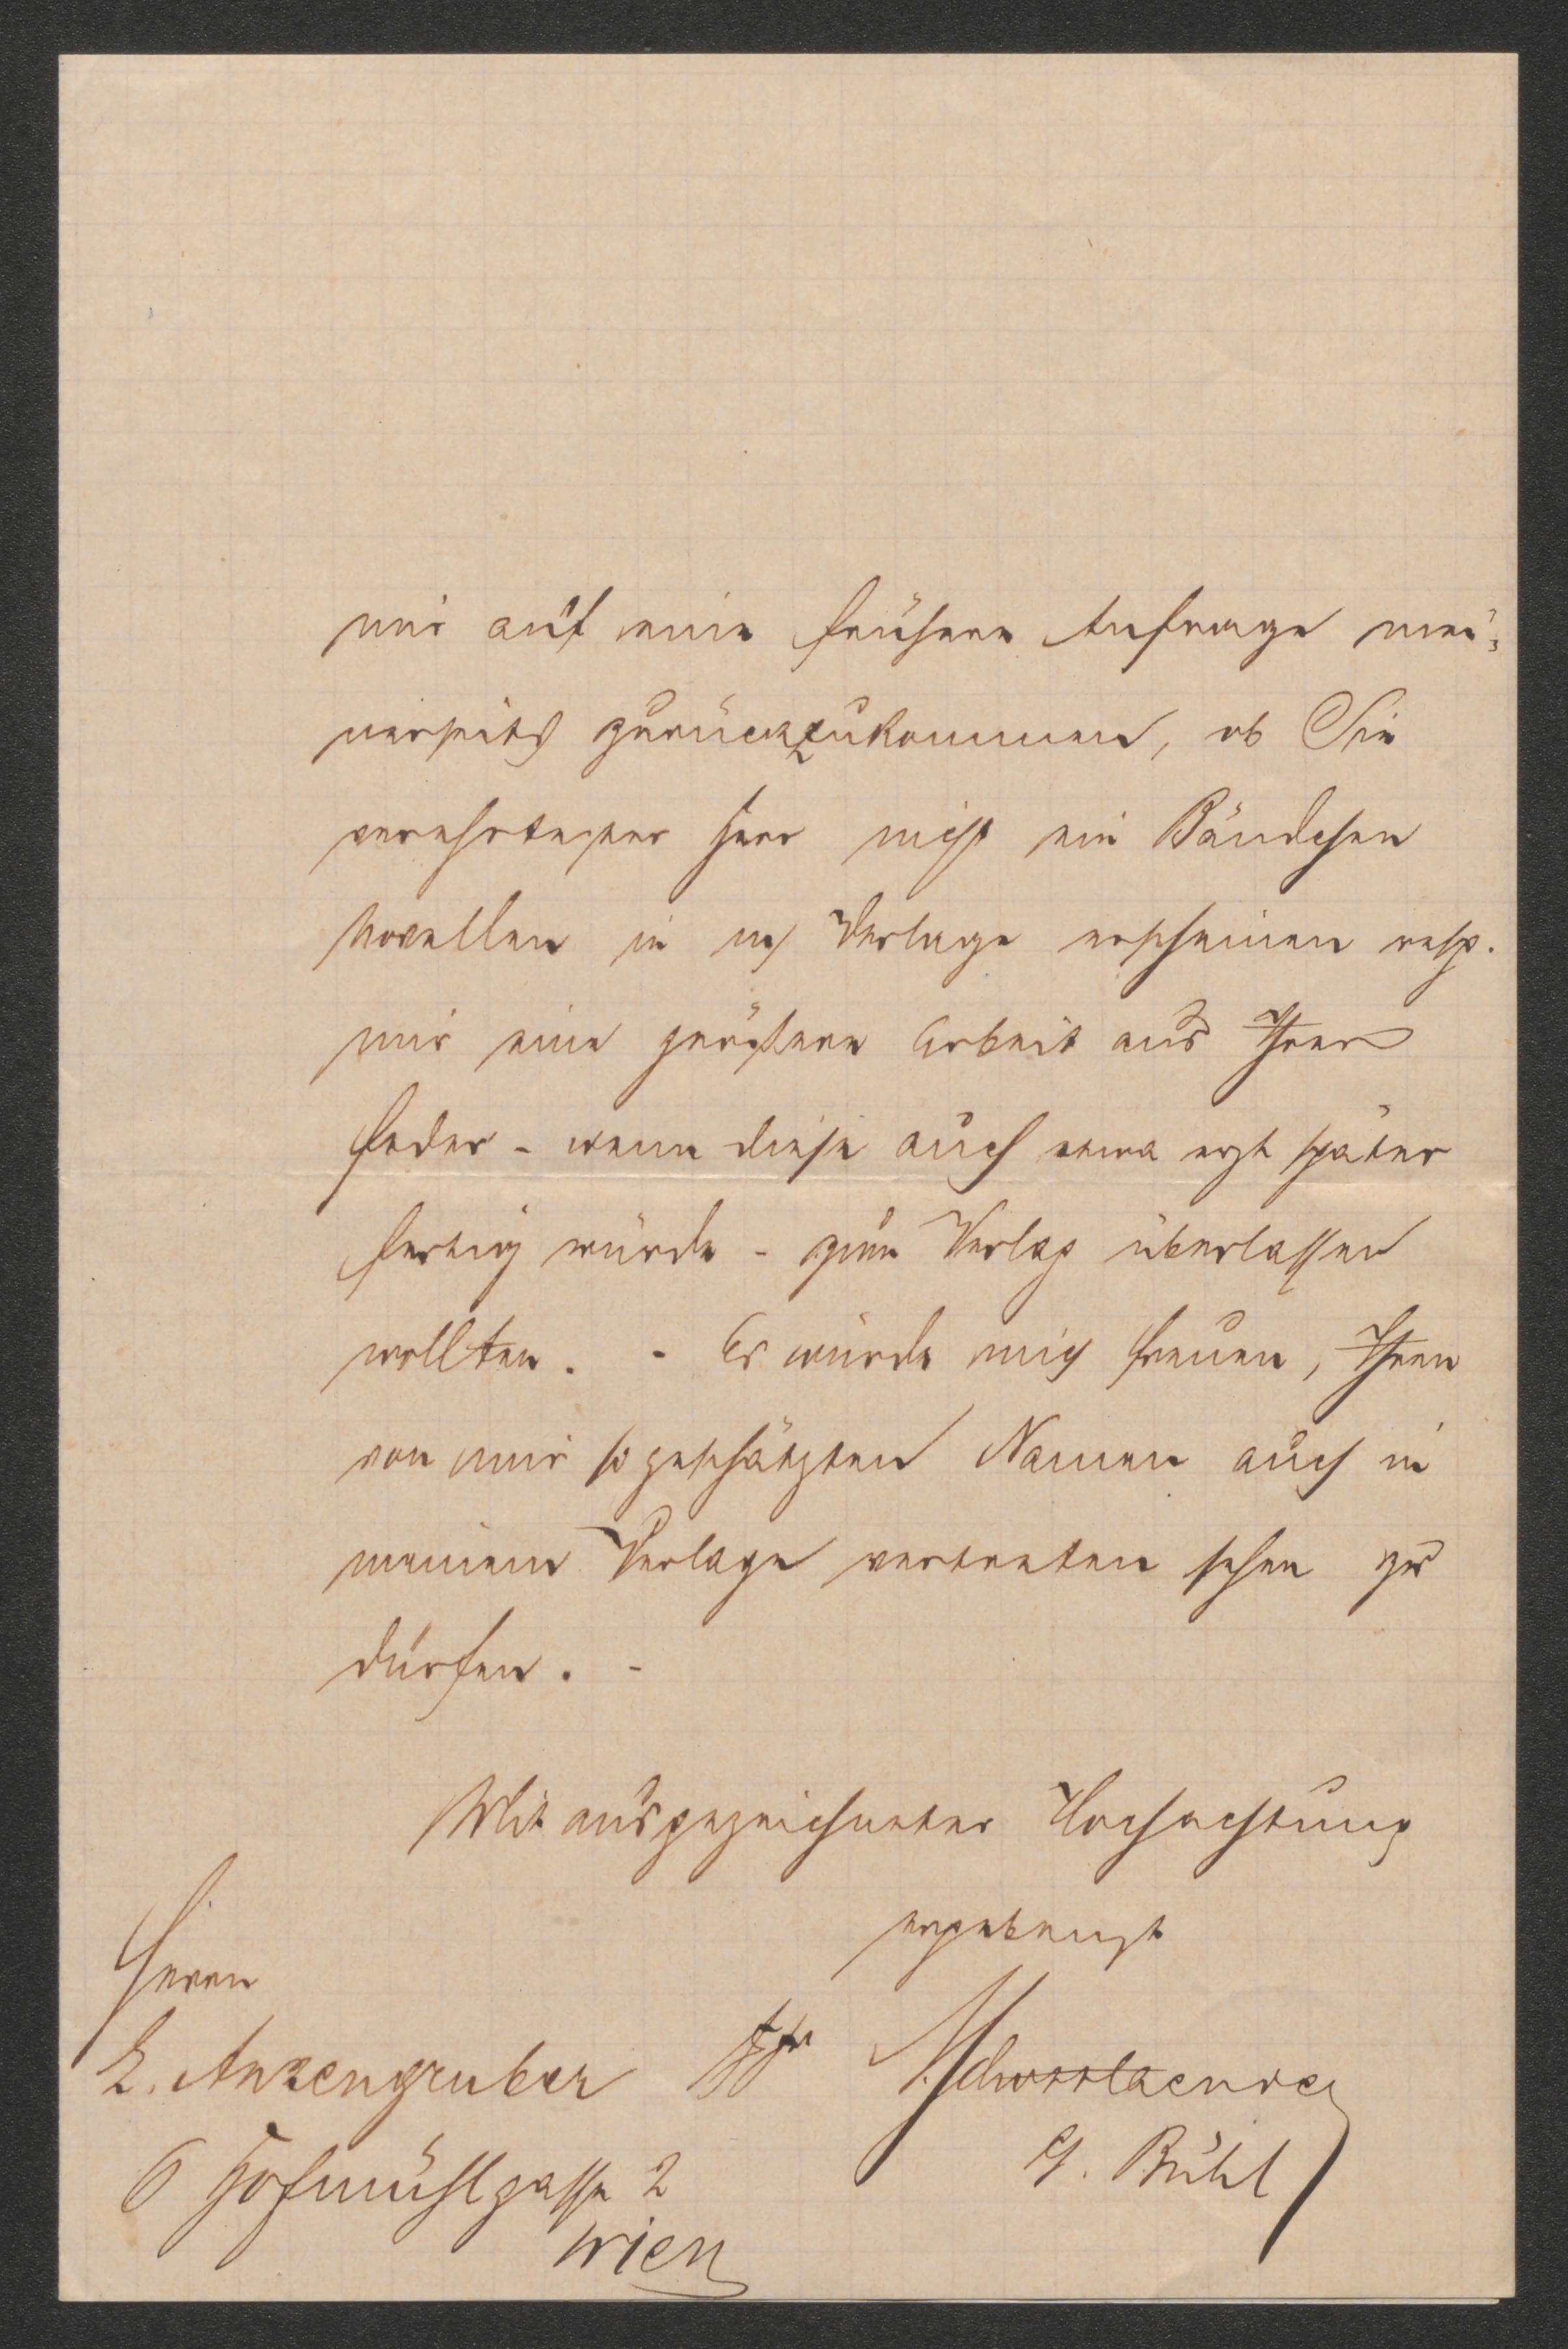 mir auf eine frühere Anfrage mei-
nerseits zurückzukommen, ob Sie
verehrtester Herr nicht ein Bändchen
Novellen in m/ Verlage erscheinen resp.
mir eine größere Arbeit aus Ihrer
Feder - wenn diese auch etwa erst später
fertig würde - zum Verlag überlassen
wollten. - Es würde mich freuen, Ihren
von mir so geschätzten Namen auch in
meinem Verlage vertreten sehen zu
dürfen. -
Mit ausgezeichneter Hochachtung
ergebenst
Herrn
L. Anzengruber
6 Hofmühlgasse 2
Wien